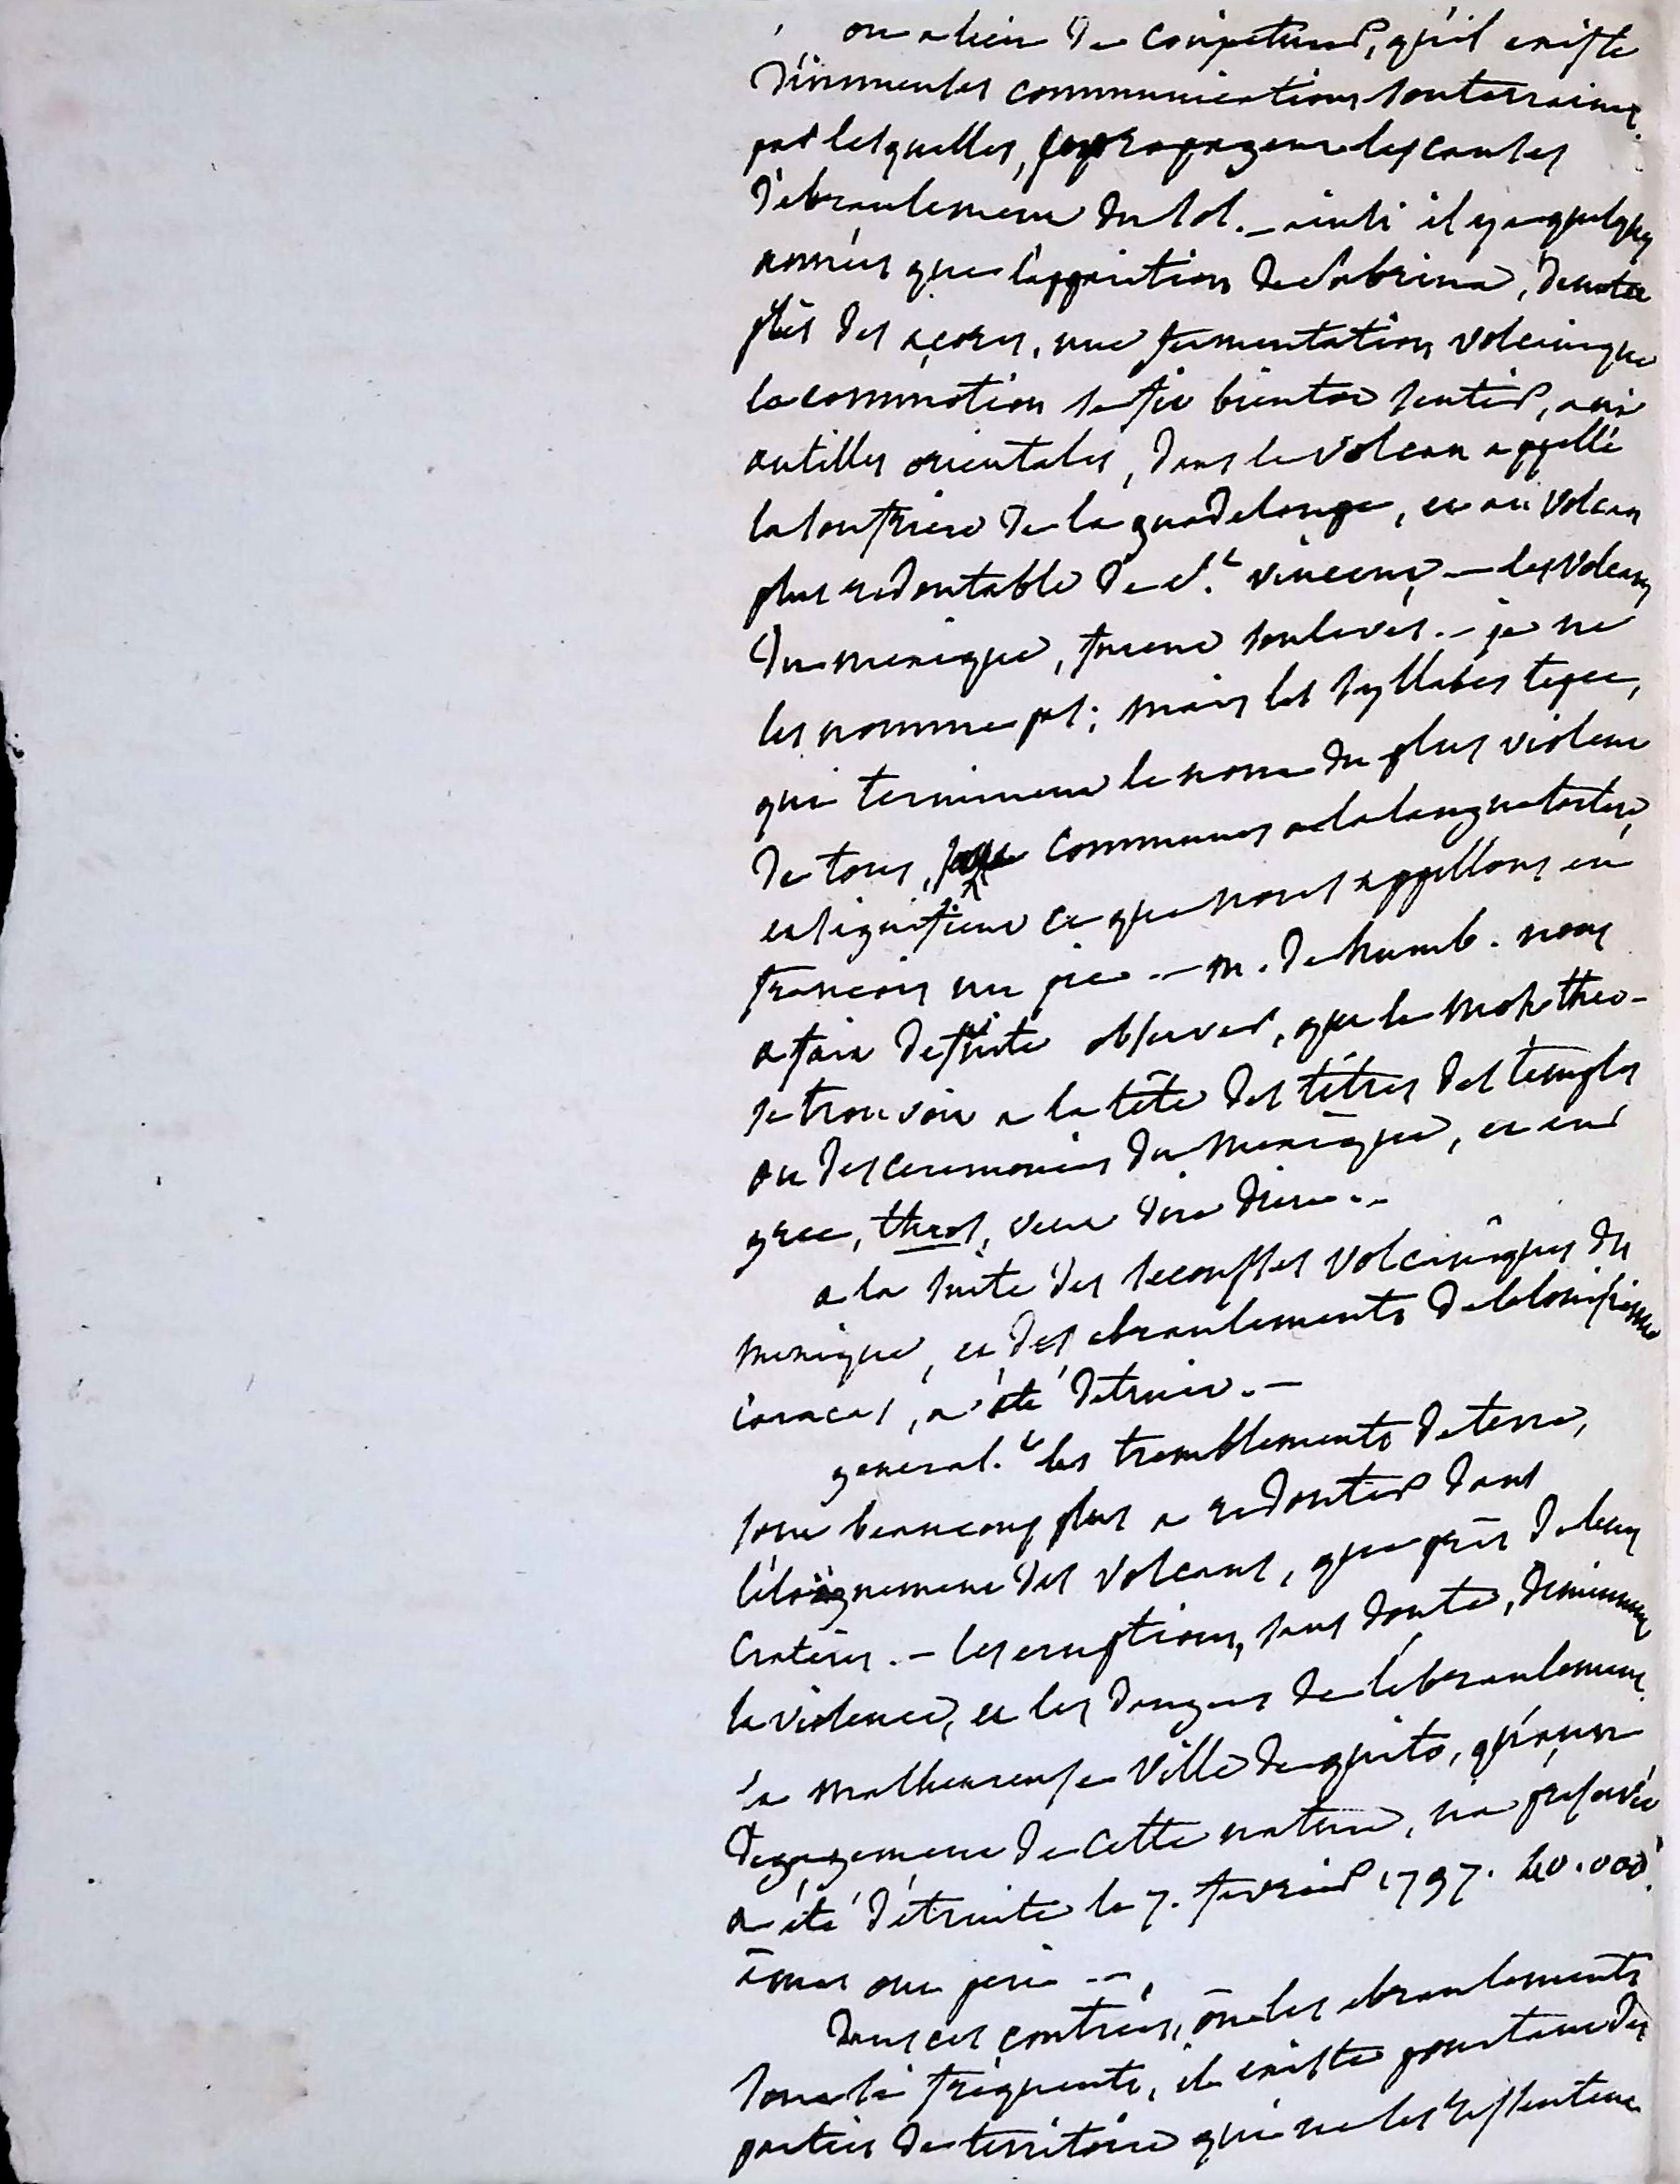 on a lieu de conjecturer, qu'il existe
d'immenses communications souterraines
par lesquelles, se propagent les causes
d'ebranlement du sol. _ ainsi il y a quelques
années que l'apparition de Sabrina,
près des açores, une fermentation volcanique
la commotion se fit bientot sentir, aux
antilles orientales, dans le volcan appellé
la souffriere de la guadeloupe, et au volcan
plus redoutable de St. vincent, — les volcans
du mexique, furent soulevés. – je ne
les nomme pas; mais les syllabes tepec,
qui terminent le nom du plus violent
de tous, communes a la langue tartare,
et signifient ce que nous appellons en
francois un pic — m. de humb. nous
a fait de suite observer, que le mot theo-
se trouvoit a la tête des titres des temples
ou des ceremonies du mexique, et en
grec, theos, veut dire dieu...
a la suite des secousses volcaniques du
mexique, et des ebranlements de la louisiane
caracas, a été detruit. —
general.t les tremblements de terre,
sont beaucoup plus a redouter dans
l'éloignement des volcans, que près de leurs
crateres. – les eruptions, sans doute, diminuent
la violence, et les dangers de l'ébranlement.
la malheureuse ville de quito, qu'aucun
degagement de cette nature, n'a preservée
a été détruite le 7. fevrier 1797. 40.000.
âmes ont peri —.
dans ces contrées, où les ebranlements
sont si fréquents, il existe pourtant des
parties de territoire qui ne les ressentent